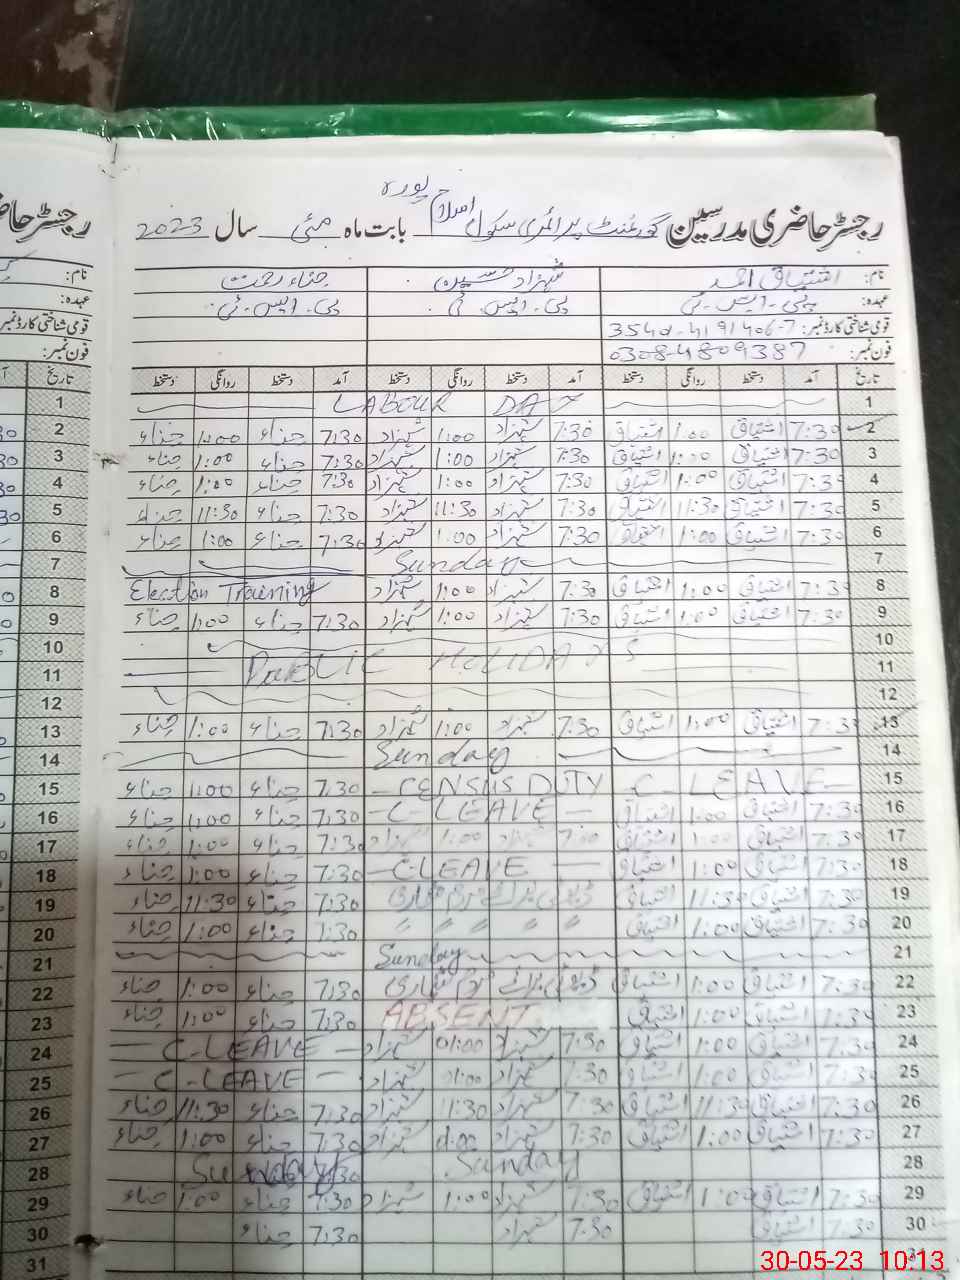 پورہ
رجسٹر حاضری مدرسین گورنمنٹ پرائمری سکول اسلام بابت ماہ مئی سال 2023
نام: اشتیاق احمد شہزاد حسین حناء رحمت
عہدہ: پی۔ایس۔ٹی پی۔ایس۔ٹی پی۔ایس۔ٹی
قومی شناختی کارڈ نمبر:
فون نمبر: 0308-4809387
تاریخ آمد دستخط روانگی دستخط آمد دستخط روانگی دستخط آمد دستخط روانگی دستخط تاریخ
1 LABOUR DAY 1
2 7:30 اشتیاق 1:00 اشتیاق 7:30 شہزاد 1:00 شہزاد 7:30 حناء 1:00 حناء 2
3 7:30 اشتیاق 1:00 اشتیاق 7:30 شہزاد 1:00 شہزاد 7:30 حناء 1:00 حناء 3
4 7:30 اشتیاق 1:00 اشتیاق 7:30 شہزاد 1:00 شہزاد 7:30 حناء 1:00 حناء 4
5 7:30 اشتیاق 11:30 اشتیاق 7:30 شہزاد 11:30 شہزاد 7:30 حناء 11:30 حناء 5
6 7:30 اشتیاق 1:00 اشتیاق 7:30 شہزاد 1:00 شہزاد 7:30 حناء 1:00 حناء 6
7 Sunday 7
8 7:30 اشتیاق 1:00 اشتیاق 7:30 شہزاد 1:00 شہزاد Election Training 8
9 7:30 اشتیاق 1:00 اشتیاق 7:30 شہزاد 1:00 شہزاد 7:30 حناء 1:00 حناء 9
10 10
11 PUBLIC HOLIDAYS 11
12 12
13 7:30 اشتیاق 1:00 اشتیاق 7:30 شہزاد 1:00 شہزاد 7:30 حناء 1:00 حناء 13
14 Sunday 14
15 C-LEAVE CENSUS DUTY 7:30 حناء 1:00 حناء 15
16 7:30 اشتیاق 1:00 اشتیاق C-LEAVE 7:30 حناء 1:00 حناء 16
17 7:30 اشتیاق 1:00 اشتیاق 7:30 شہزاد 1:00 شہزاد 7:30 حناء 1:00 حناء 17
18 7:30 اشتیاق 1:00 اشتیاق C-LEAVE 7:30 حناء 1:00 حناء 18
19 7:30 اشتیاق 11:30 اشتیاق ڈیوٹی برائے مردم شماری 7:30 حناء 11:30 حناء 19
20 7:30 اشتیاق 1:00 اشتیاق 〃 〃 〃 〃 7:30 حناء 1:00 حناء 20
21 Sunday 21
22 7:30 اشتیاق 1:00 اشتیاق ڈیوٹی برائے مردم شماری 7:30 حناء 1:00 حناء 22
23 7:30 اشتیاق 1:00 اشتیاق ABSENT 7:30 حناء 1:00 حناء 23
24 7:30 اشتیاق 1:00 اشتیاق 7:30 شہزاد 01:00 شہزاد C-LEAVE 24
25 7:30 اشتیاق 1:00 اشتیاق 7:30 شہزاد 01:00 شہزاد C-LEAVE 25
26 7:30 اشتیاق 11:30 اشتیاق 7:30 شہزاد 11:30 شہزاد 7:30 حناء 11:30 حناء 26
27 7:30 اشتیاق 1:00 اشتیاق 7:30 شہزاد 01:00 شہزاد 7:30 حناء 1:00 حناء 27
28 Sunday Sunday 7:30 28
29 7:30 اشتیاق 1:00 اشتیاق 7:30 شہزاد 1:00 شہزاد 7:30 حناء 1:00 حناء 29
30 7:30 اشتیاق 7:30 شہزاد 7:30 حناء 30
31 31
30-05-23 10:13